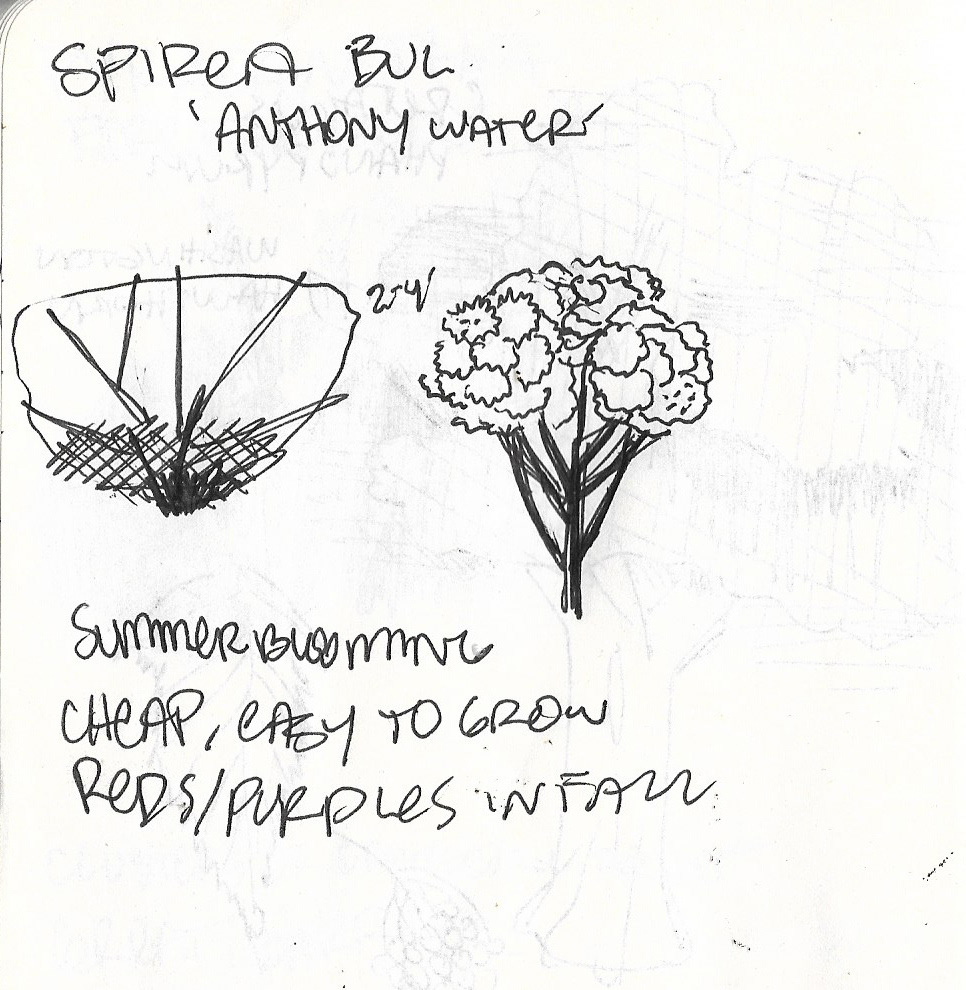 SPIREA BUL.
'ANTHONY WATER'
2-4'
SUMMER BLOOMING
CHEAP, EASY TO GROW
REDS/PURPLES IN FALL